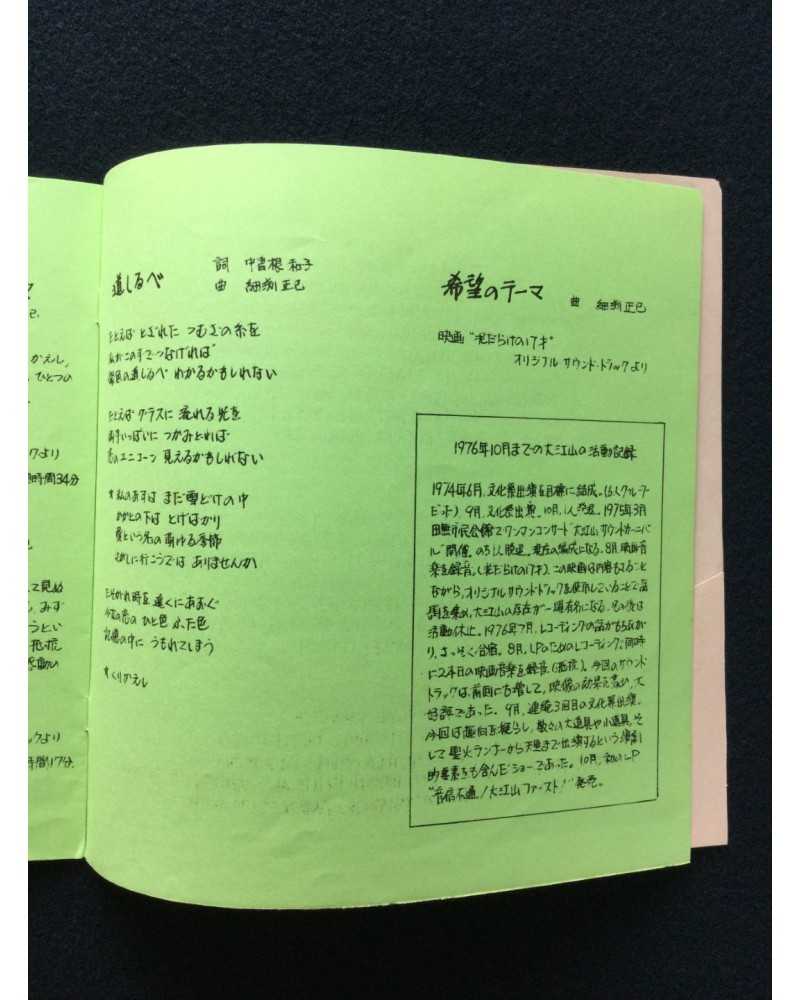 かえし,
ひとつの
クより
時間34分
て見め
みず
うとい
抵抗
感動の
ックより
時間17分
道しるべ
詞 中曽根 和子
曲 細渕 正己
たとえば とぎれた つむぎの糸を
私がこの手でつなげれば
の道しるべ わかるかもしれない
たとえば グラスに 流れる光を
両手いっぱいに つかみとれば
のユニコーン 見えるかもしれない
*私のあすは まだ雪どけの中
かかとの下は とげばかり
という名の萌ゆる季節
しに行こうでは ありませんか
たそがれ時を 遠くにあおぐ
ひと色 ふた色
記憶の中に うもれてしまう
*くりかえし
希望のテーマ
曲 細渕正己
映画"泥だらけの17才"
オリジナル サウンド・トラックより
1976年10月までの大江山の活動記録
1974年6月,文化祭出演を目標に結成。(6人グループ
) 9月,文化祭出演。10月,1人脱退。1975年3月
田無市民会館でワンマンコンサート"大江山サウンドカーニバ
ル"開催。のち1人脱退。現在の編成になる。8月,映画音
楽を録音。(泥だらけの17才)。この映画は内容もさること
ながら,オリジナルサウンドトラックを使用していることで話
題を集め,大江山の存在が一躍有名になる。その後は
活動休止。1976年7月,レコーディングの話がもちあが
り,さっそく合宿。8月,LPのためのレコーディングと同時
に2本目の映画音楽を録音()。今回のサウンド
トラックは,前回にも増して,映像の効果を高め,大
好評であった。9月,連続3回目の文化祭出演。
今回は趣向を凝らし,数々の大道具や小道具,そ
して聖火ランナーから天皇まで出演するという演劇
的要素をも含んだショーであった。10月,初のLP
"音信不通/大江山ファースト!"発売。